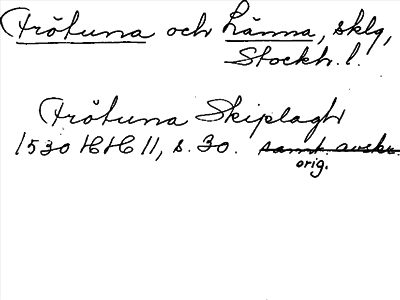 Frötuna och Länna, sklg,
Stockh. l.
Frötuna Skiplagh
1530 HH 11, s. 30. samt. avskr.
orig.